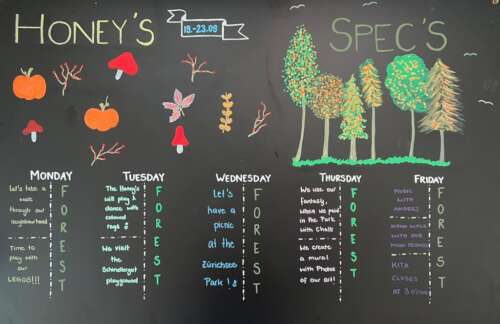 HONEY'S
19.-23.09
SPEC'S
MONDAY
Let's take a
walk
through our
neighbourhood
Time to
play with
our
LEGOS!!!
FOREST
TUESDAY
The Honey's
will play &
dance with
coloured
rags
We visit
the
Schindlergut
playground
FOREST
WEDNESDAY
Let's
have a
picnic
at the
Zürichsee
Park!
FOREST
THURSDAY
We use our
fantasy,
when we paint
in the Park
with Chalk
We create
a mural
with Photos
of our art!
FOREST
FRIDAY
MUSIC
WITH
WITH OUR
KITA
CLOSES
AT
FOREST